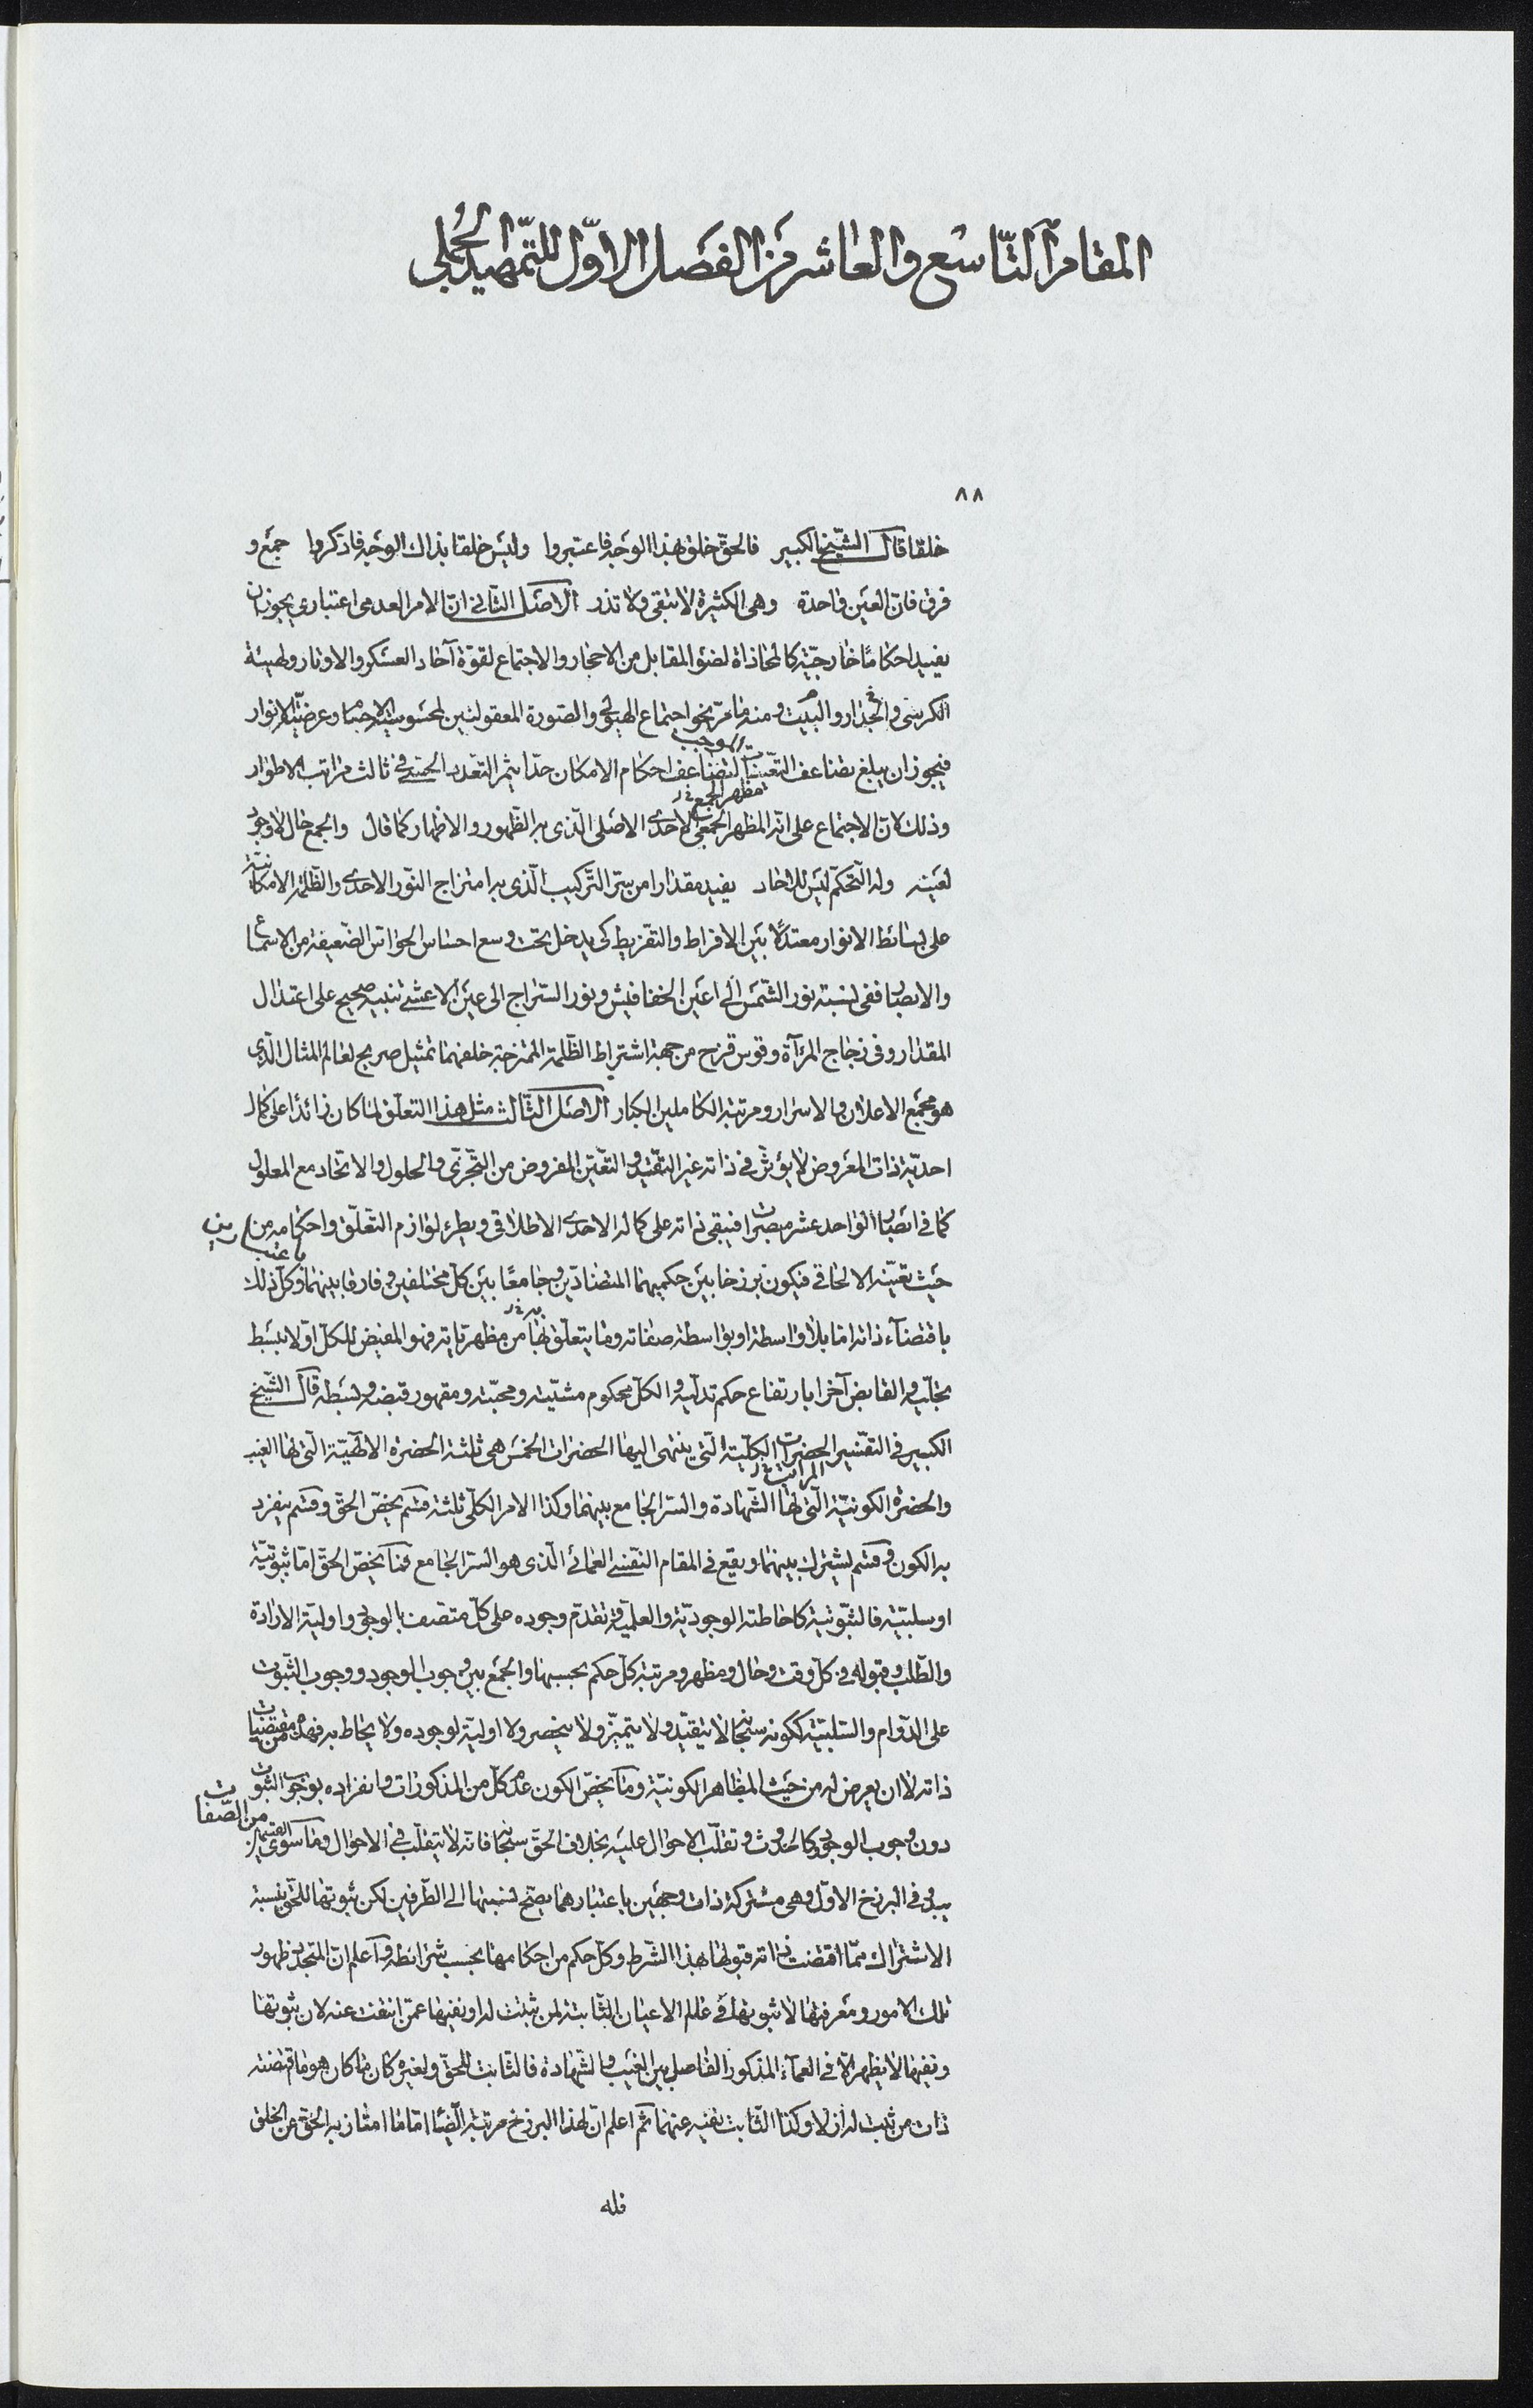 المقام التّاسع والعاشر من الفصل الاوّل للتّمهيد الجُملي
٨٨
خلقا قال الشّيخ الكبير فالحقّ خلق بهذا الوجه فاعتبروا وليس خلقا بذاك الوجه فاذكروا جمع و
فرق فانّ العين واحدة وهى الكثيرة لا تبقى ولا تذر الاصل الثانى انّ الامر العدمى اعتبارى يجوز ان
يفيد احكامًا خارجيّة كالمحاذاة لضوء المقابل من الاحجار والاجتماع لقوّة آحاد العسكر والاوتار ولهيئة
الكرسى والجدار والبيت ومنه ما مرّ نحو اجتماع الهيولى والصّورة المعقولتين لمحسوسيّة الاجسام وعرضيّة الانوار
فيجوز ان يبلغ تضاعف التّعيّنات لتضاعف احكام الامكان حدّا يثمر التعدّد الحسّى فى ثالث مراتب الاطوار
وذلك لانّ الاجتماع على انّه المظهر الجمعى الاحدى الاصلى الّذى به الظّهور والاظهار كما قال والجمع حال لا وجود
لعينه وله التّحكّم ليس للاحاد يفيد مقدارا من سرّ التّركيب الّذى به امتزاج النّور الاحدى والظّلمة الامكانيّة
على بسائط الانوار معتدلًا بين الافراط والتفريط كى يدخل تحت وسع احساس الحواسّ الضّعيفة من الاسماع
والابصار ففى نسبة نور الشّمس الى اعين الخفافيش ونور السّراج الى عين الاعشى تنبيه صحيح على اعتدال
المقدار وفى زجاج المرآة وقوس قزح من جهة اشتراط الظّلمة الممتزجة خلفهما تمثيل صريح لعالم المثال الّذى
هو مجمع الاعلان والاسرار ومرتبة الكاملين الكبار الاصل الثّالث مثل هذا التعلّق لمّا كان زائدا على كمال
احديّة ذات المعروض لا يؤثّر فى ذاته غير التقيّد والتعيّن المفروض من التّجزّى والحلول والاتحاد مع المعلول
كما فى ابصار الواحد عشر مبصرات فيبقى ذاته على كماله الاحدى الاطلاقى ويطرء لوازم التعلّق واحكامه من
حيث تعيّنه الالحاقى فيكون برزخا بين حكميهما المتضادّين وجامعًا بين كلّ مختلفين وفارقا بينهما وكلّ ذلك
باقتضآء ذاته امّا بلا واسطة او بواسطة صفاته وما يتعلّق بها من مظهريّاته فهو المفيض للكلّ اوّلا ببسط
تجلّيه والقابض آخرا بارتفاع حكم تدلّيه والكلّ محكوم مشيّته ومحبّته ومقهور قبضه وبسطه قال الشّيخ
الكبير فى التفسير الحضرات الكلّيّة الّتى ينتهى اليها الحضرات الخمس هى ثلثة الحضرة الالٰهيّة الّتى لها الغيب
والحضرة الكونيّة الّتى لها الشّهادة والسّرّ الجامع بينهما وكذا الامر الكلّى ثلثة قسم يخصّ الحقّ وقسم ينفرد
به الكون وقسم يشترك بينهما ويقع فى المقام النّفسى العمائى الّذى هو السّرّ الجامع فما يخصّ الحقّ امّا ثبوتيّة
او سلبيّة فالثّبوتية كاحاطته الوجوديّة والعلميّة وتقدّم وجوده على كلّ متّصف بالوجود واوليّة الارادة
والطّلب وقبوله فى كلّ وقت وحال ومظهر ومرتبة كلّ حكم بحسبها والجمع بين وجوب الوجود ووجوب الثّبوت
على الدّوام والسّلبيّة ككونه سبحانه لا يتقيّد ولا يتميّز ولا ينحصر ولا اوليّة لوجوده ولا يحاط به فهذه من مقتضيات
ذاته لا ان يعرض له من حيث المظاهر الكونيّة وما يخصّ الكون عدم كلّ من المذكورات وانفراده بوجوب الثبوت
من الصّفات
دون وجوب الوجود وكالحدوث وتقلّب الاحوال عليه بخلاف الحقّ سبحانه فانّه لا يتقلّب فى الاحوال وما سوى القسمين
يبدو فى البرزخ الاوّل وهى مشتركة ذات وجهين باعتبارهما يصحّ نسبتها الى الطّرفين لكن ثبوتها للحقّ بنسبة
الاشتراك ممّا اقتضت ذاته قبولها بهذا الشّرط وكلّ حكم من احكامها بحسب شرائطه واعلم انّ المتجدّد ظهور
تلك الامور ومعرفتها لا ثبوتها فى عالم الاعيان الثّابتة لمن ثبتت له او نفيها عمّن انتفت عنه لان ثبوتها
ونفيها لا يظهر الّا فى العماء المذكور الفاصل بين الغيب والشّهادة فالثّابت للحقّ ولغيره كان ما كان هو ما اقتضته
ذات من ثبت له ازلا وكذا الثّابت نفيه عنهما ثم اعلم انّ لهذا البرزخ مرتبة ايضًا امّا ما امتاز به الحقّ عن الخلق
فله